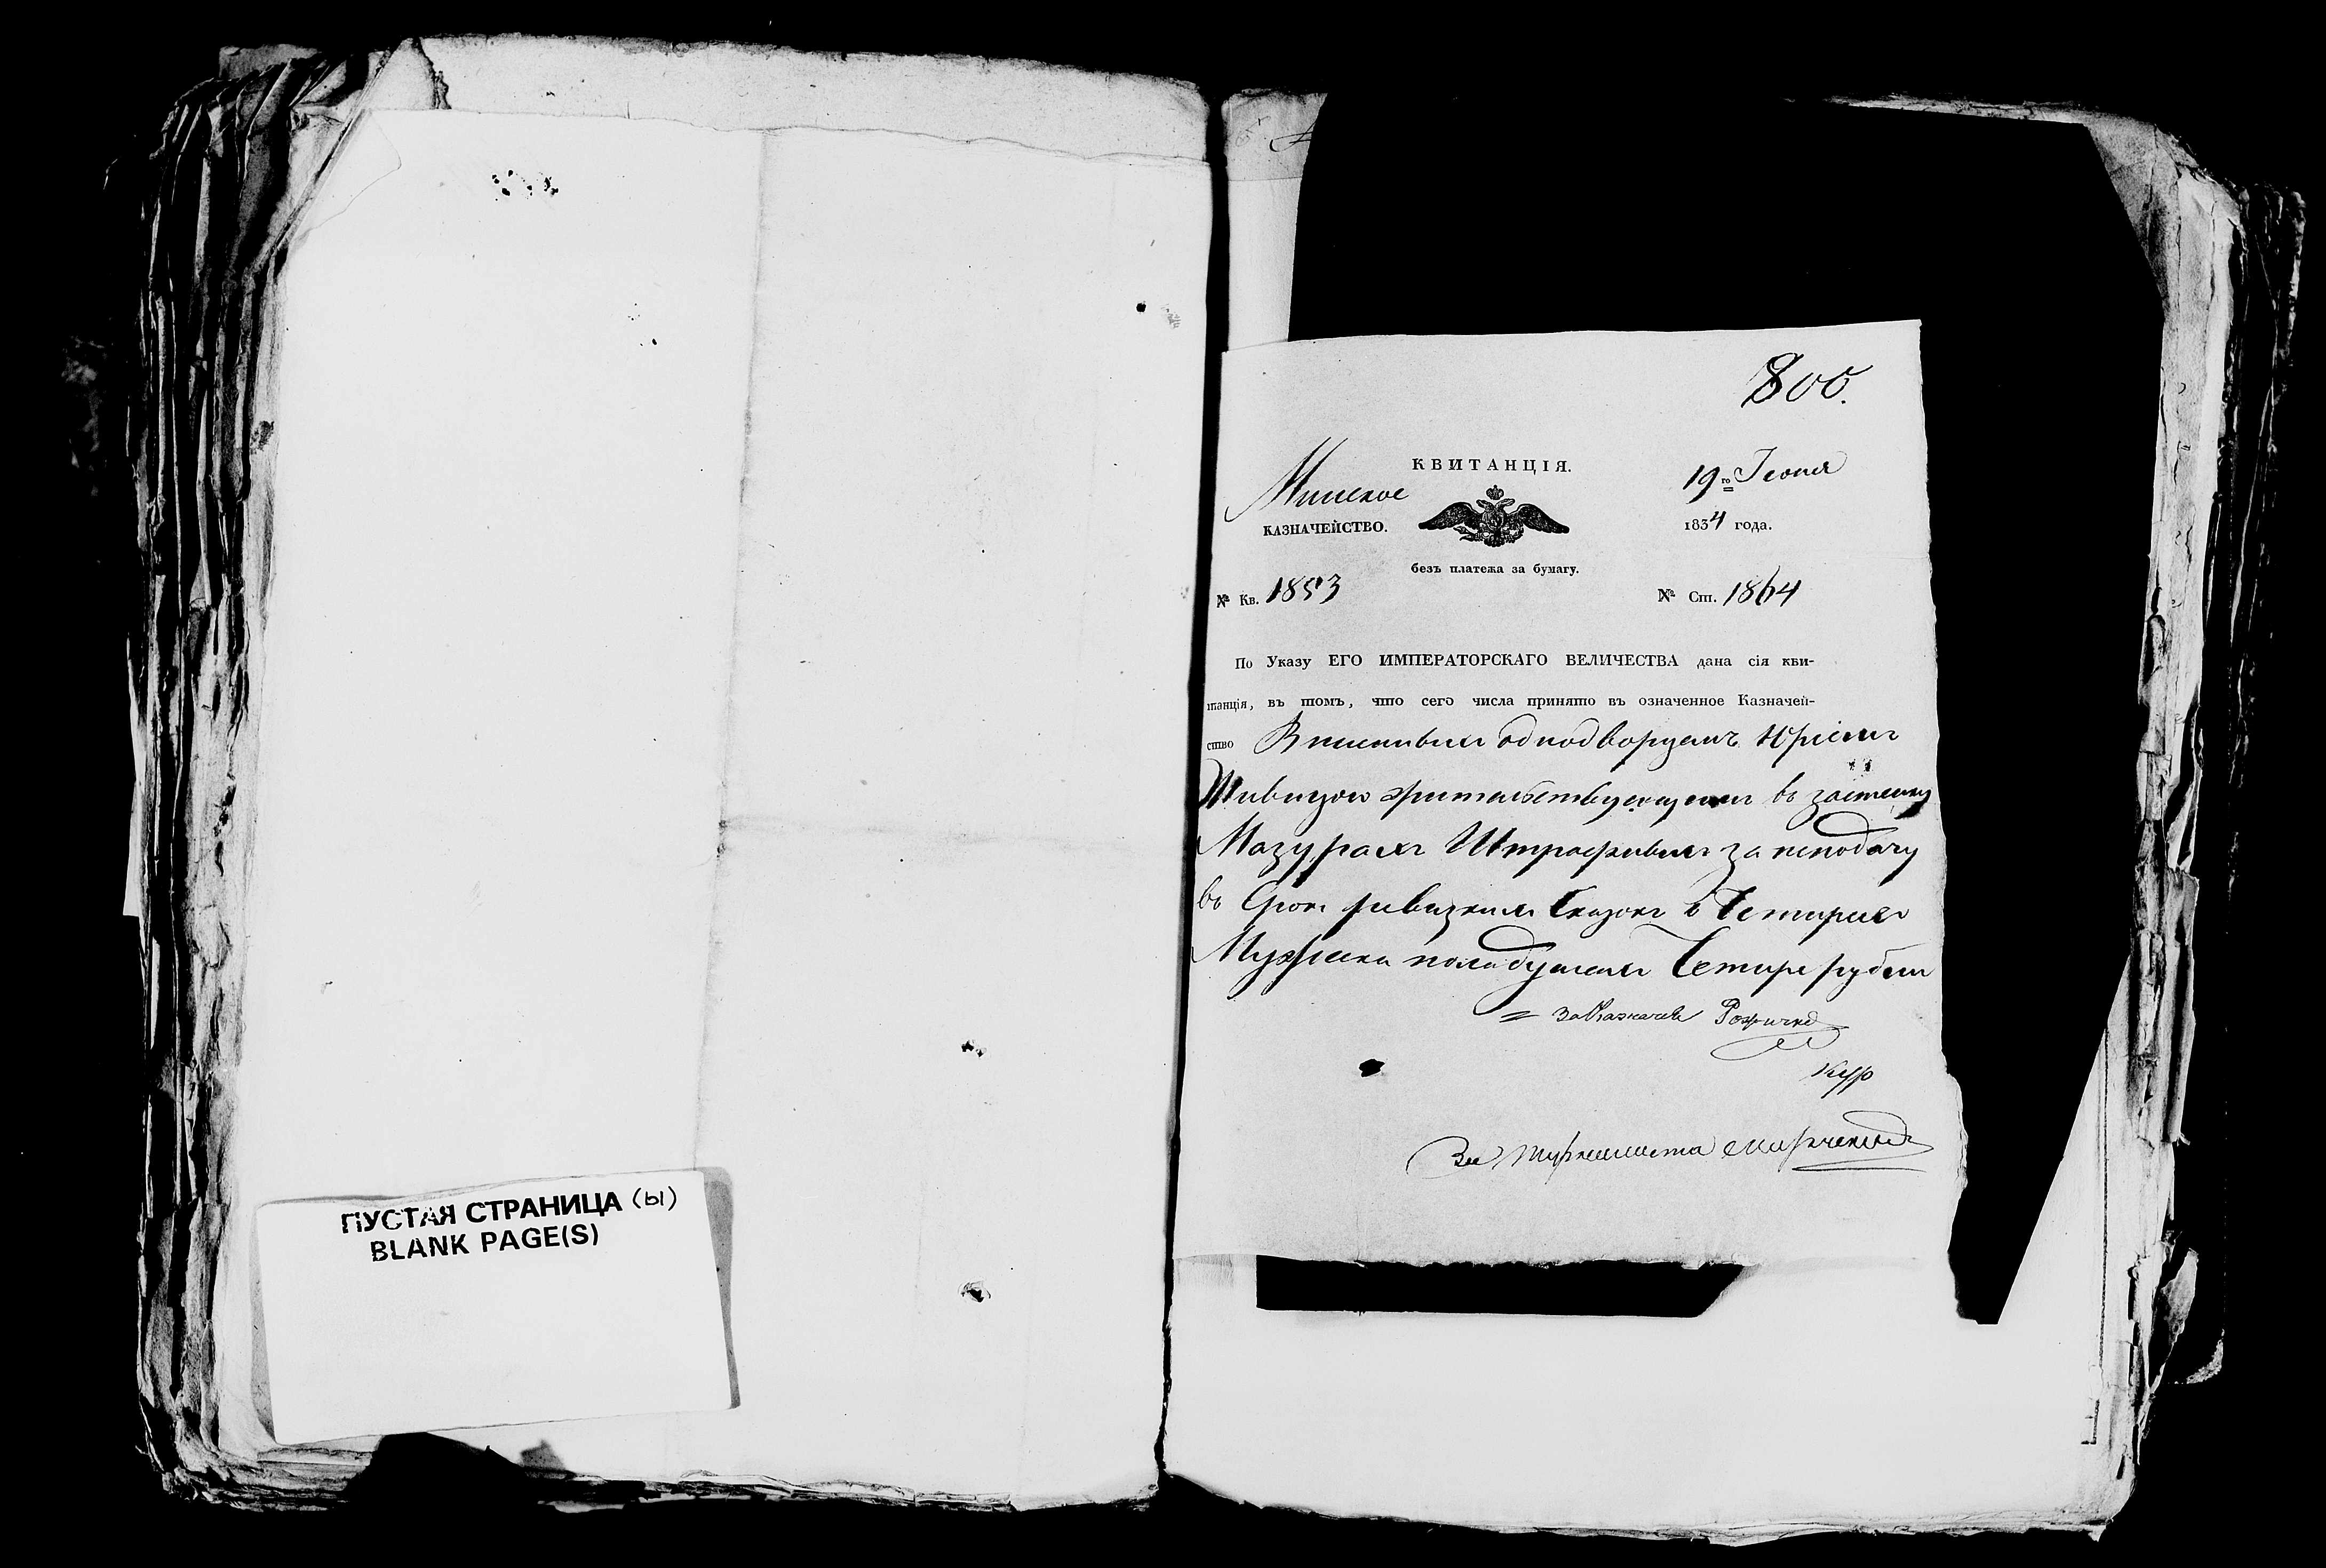 ПУСТАЯ СТРАНИЦА (ы)
BLANK PAGE(S)
800.
КВИТАНЦІЯ.
Минское
КАЗНАЧЕЙСТВО.
19го Іюня
1834 года.
безъ платежа за бумагу.
№ Кв. 1853
№ Ст. 1864
По Указу ЕГО ИМПЕРАТОРСКАГО ВЕЛИЧЕСТВА дана сія кви-
танція, въ томъ, что сего числа принято въ означенное Казначей-
ство однодворцемъ
жительствующимъ въ застенку
Мазурахъ Штрафныхъ за неподачу
въ Срокъ ревизкихъ Сказокъ о Четырехъ
Мужеска пола душахъ Четыре рубли
За Казначея
За